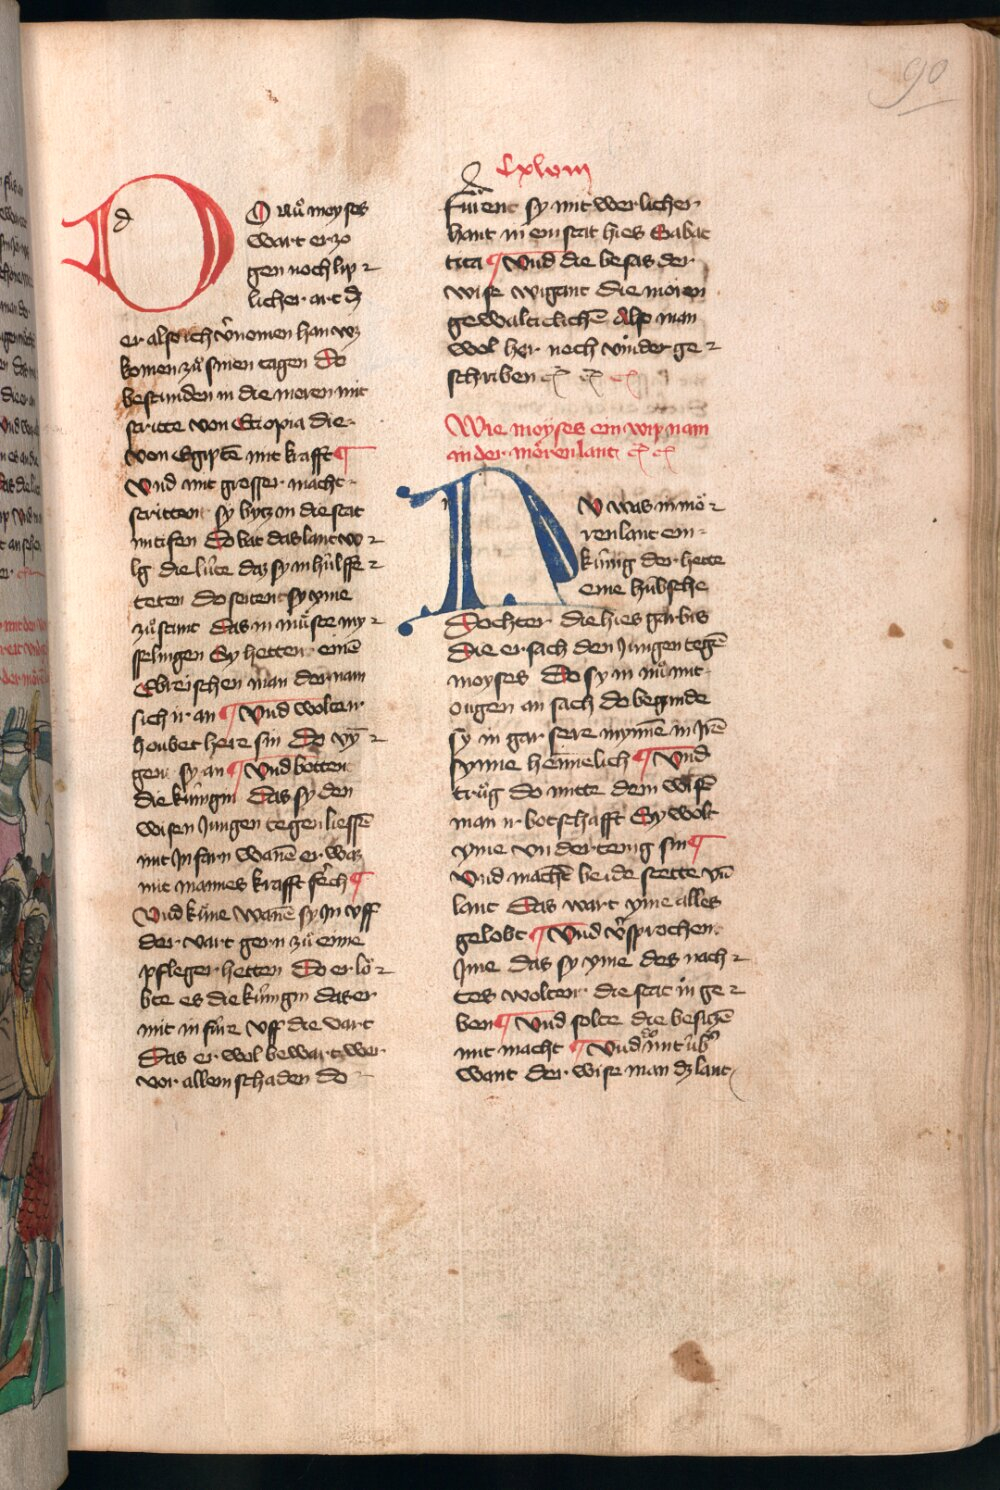 90
Cxlviii
DO Nuͦ moyses
wart erzo
gen noch lip
licher art dz
er also ich v̓nomen han wz
komen zuͦ sinen tagen Do
bestunden in die moren mit
stritte von Etiopia die
von Egiptē mit krafft ¶
Vnd mit grosser macht
stritten sy bytz an die stat
mifen Do bat das lant vo
lg die lúte daz sy in húlffe
teten do seitent sy yme
zuͦ stunt Das in muͤste my
sselingen Sy hetten einē
Ebreischen man der nam
sich ir an ¶ Vnd wolten
houbet here sin Do vȳ
gen sy an ¶ Vnd botten
die kúnigin Das sy den
wisen Jungen tegen liessē
mit In farn wanē er waz
mit mannes krafft frech ¶
Vnd kuͤne wanē sy In vff
der vart gern zuͦ eime
pfleger hetten Do er loͤ
bte es die kúnigin das er
mit in fúre vff die vart
Das er wol bewart wer
vor allem schaden do
fuͤrent sy mit werlicher
hant in ein stat hies Sabat
tita ¶ Vnd die besas der
wise wigant die moren
gewelticlichē Also man
wol her noch vinder ge
schriben
Wie moyses ein wip nam
in der moͤren lant
NV was in moͤ
ren lant ein
kúnig der hette
eine húbsche
Dochter die hies garbis
Die ersach den Jungen tegē
moyses Do sy in nuͦ mit
ougen an sach do begunde
sy in gar sere mynnē in Irē
synne heimelich ¶ Vnd
truͦg do mitte dem wisē
man ir botschafft Sy wolt
yme vndertenig sin ¶
Vnd machē beide stette vn̄
lant Das wart yme alles
gelobt ¶ Vnd v̓sprochen
Jme das sy yme des nach
tes wolten die stat in ge
ben ¶ Vnd solte die besitzē
mit macht ¶ Vnd do mit úb̓
want der wise man dz lant